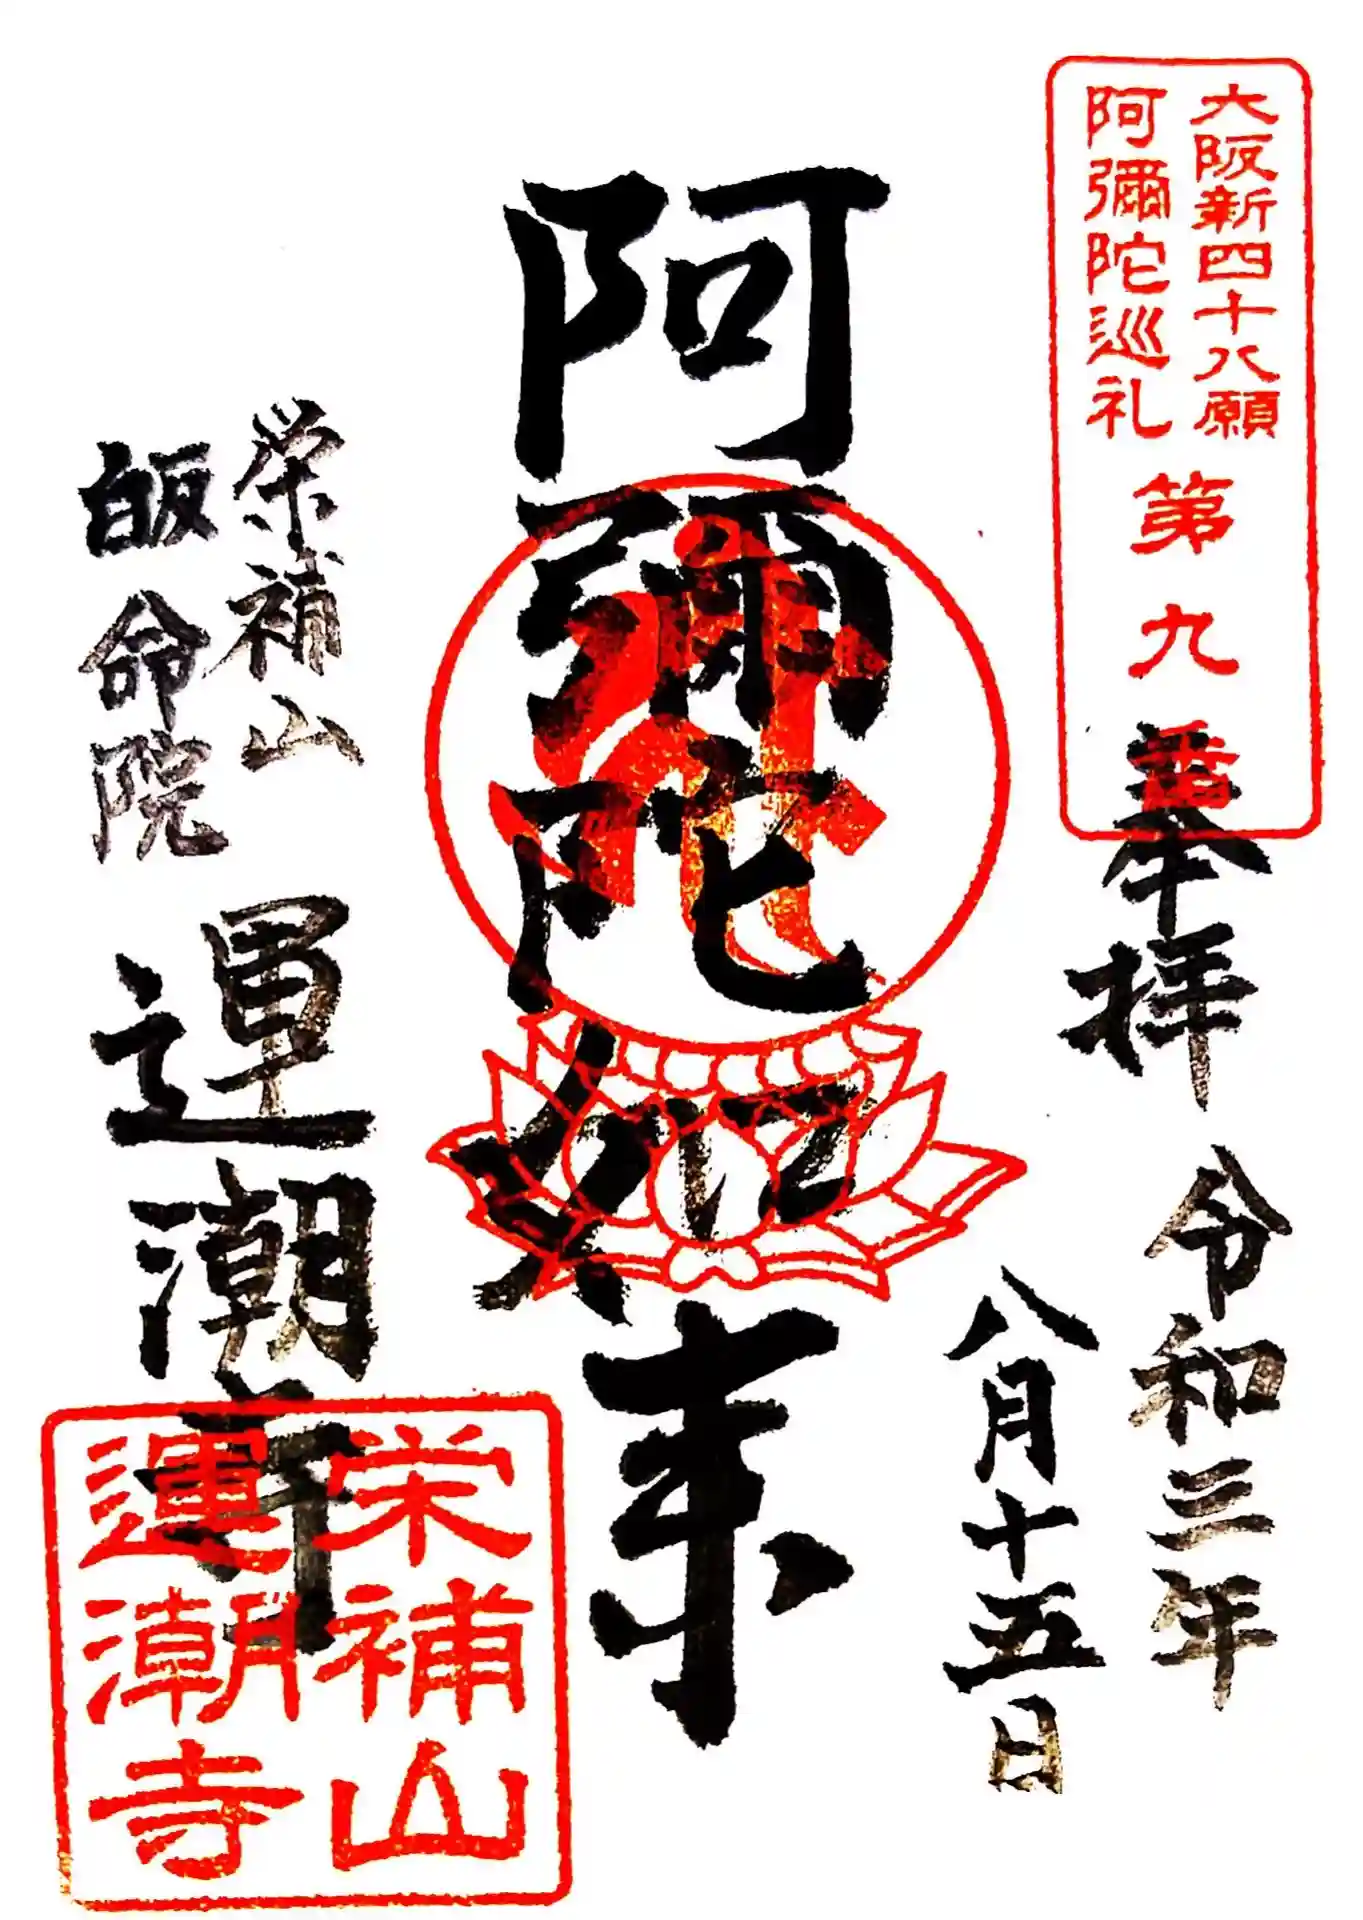 大阪新四十八願
阿彌陀巡礼
第九番
奉拝
令和三年
八月十五日
阿彌陀如来
栄補山
皈命院
運潮寺
栄補山
運潮寺